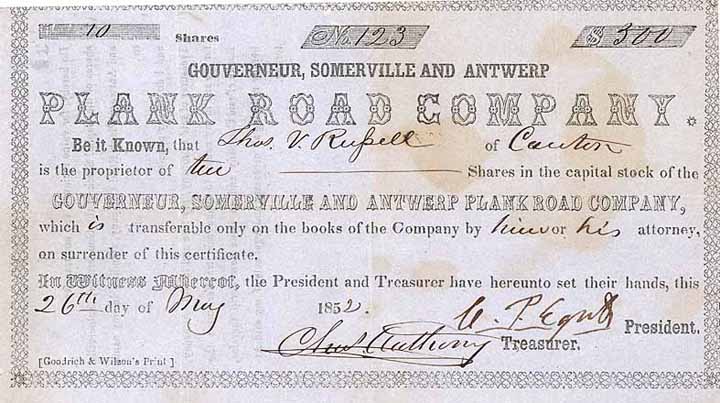 10 Shares No. 123 $ 300
GOUVERNEUR, SOMERVILLE AND ANTWERP
PLANK ROAD COMPANY.
Be it Known, that Thos. V. Russell of Canton
is the proprietor of ten Shares in the capital stock of the
GOUVERNEUR, SOMERVILLE AND ANTWERP PLANK ROAD COMPANY,
which is transferable only on the books of the Company by him or his attorney,
on surrender of this certificate.
In Witness Whereof, the President and Treasurer have hereunto set their hands, this
26th day of May 1852.
President.
Chas. Anthony Treasurer.
[Goodrich & Wilson's Print]